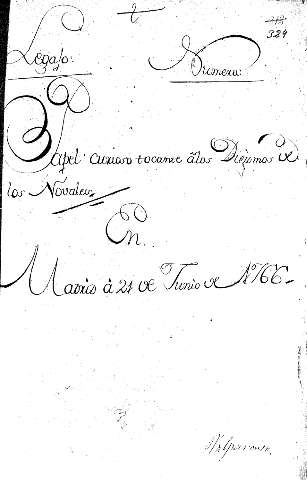 2
324
Legajo: Numero:
Papel curioso tocante â los Diezmos de
los Novales
En
Madrid â 21 de Junio de